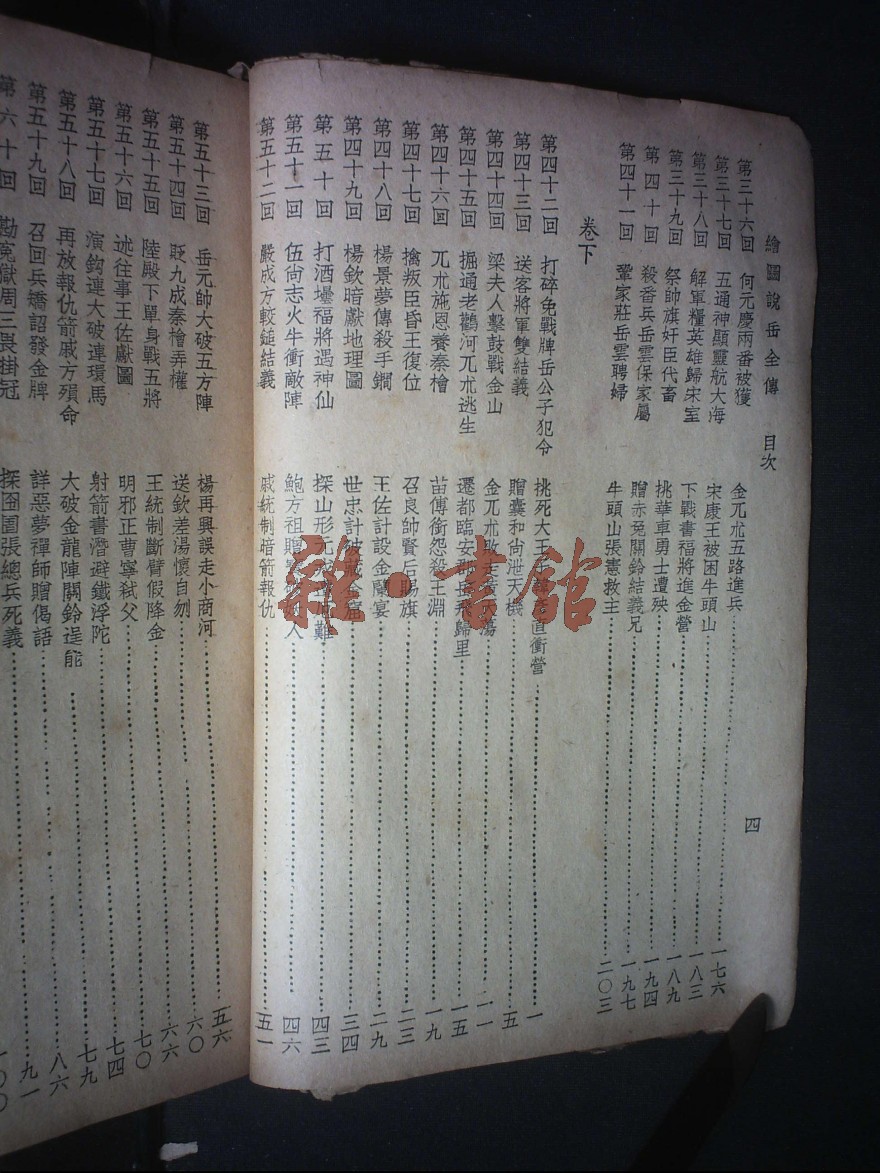 繪圖說岳全傳 目次 四
第三十六回 何元慶兩番被獲 金兀朮五路進兵 一七六
第三十七回 五通神顯靈航大海 宋康王被困牛頭山 一八三
第三十八回 解軍糧英雄歸宋室 下戰書福將進金營 一八九
第三十九回 祭帥旗奸臣代畜 挑華車勇士遭殃 一九四
第四十回 殺番兵岳雲保家屬 贈赤兔關鈴結義兄 一九七
第四十一回 鞏家莊岳雲聘婦 牛頭山張憲救主 二〇三
卷下
第四十二回 打碎免戰牌岳公子犯令 挑死大王 直衝營 一
第四十三回 送客將軍雙結義 贈囊和尚泄天機 五
第四十四回 梁夫人擊鼓戰金山 金兀朮敗走 蕩 一一
第四十五回 掘通老鸛河兀朮逃生 遷都臨安郡岳飛歸里 一五
第四十六回 兀朮施恩養秦檜 苗傅銜怨殺王淵 一九
第四十七回 擒叛臣昏王復位 召良帥賢后賜旗 二三
第四十八回 楊景夢傳殺手鐧 王佐計設金蘭宴 二九
第四十九回 楊欽暗獻地理圖 世忠計破 金窟 三四
第五十回 打酒壜福將遇神仙 探山形元 難 四三
第五十一回 伍尚志火牛衝敵陣 鮑方祖贈 人 四六
第五十二回 嚴成方較鎚結義 戚統制暗箭報仇 五一
第五十三回 岳元帥大破五方陣 楊再興誤走小商河 五六
第五十四回 貶九成秦檜弄權 送欽差湯懷自刎 六〇
第五十五回 陸殿下單身戰五將 王統制斷臂假降金 六六
第五十六回 述往事王佐獻圖 明邪正曹寧弒父 七〇
第五十七回 演鈎連大破連環馬 射箭書潛避鐵浮陀 七四
第五十八回 再放報仇箭戚方殞命 大破金龍陣關鈴逞能 七九
第五十九回 召回兵矯詔發金牌 詳惡夢禪師贈偈語 八六
第六十回 勘冤獄周三畏掛冠 探囹圄張總兵死義 九一
一〇〇
雜·書館